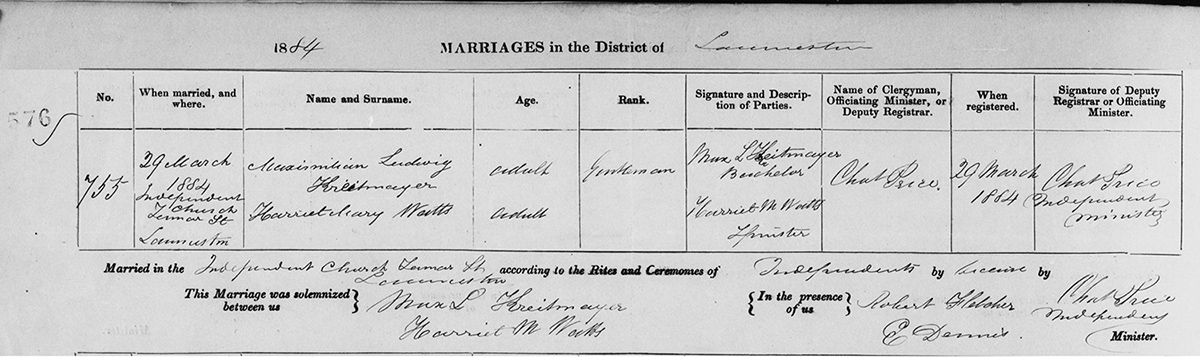 1884 MARRIAGES in the District of Launceston
576
No. When married, and where. Name and Surname. Age. Rank. Signature and Description of Parties. Name of Clergyman, Officiating Minister, or Deputy Registrar. When registered. Signature of Deputy Registrar or Officiating Minister.
755
29 March
1884
Independent
Church
Tamar St
Launceston
Maximilian Ludwig
Kreitmayer
Harriet Mary Watts
adult
adult
Gentleman
Max L Kreitmayer
Bachelor
Harriet M Watts
Spinster
Chas Price.
29 March
1884
Chas Price
Independent
Minister
Married in the Independent Church Tamar St Launceston according to the Rites and Ceremonies of Independents by License by
This Marriage was solemnized between us
Max L Kreitmayer
Harriet M Watts
In the presence of us
Robert Fletcher
E Dennis.
Chas Price
Independent
Minister.